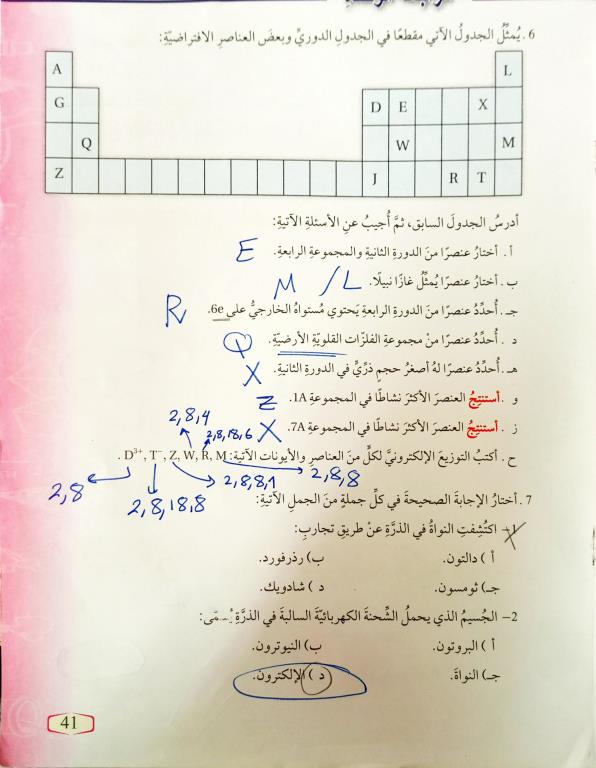 6. يُمثِّلُ الجدولُ الآتي مقطعًا في الجدولِ الدوريِّ وبعضَ العناصرِ الافتراضيّةِ:
A L
G D E X
Q W M
Z J R T
أدرسُ الجدولَ السابق، ثمَّ أُجيبُ عنِ الأسئلةِ الآتيةِ:
أ . أختارُ عنصرًا منَ الدورةِ الثانيةِ والمجموعةِ الرابعةِ. E
ب. أختارُ عنصرًا يُمثِّلُ غازًا نبيلًا. M / L
جـ. أُحدِّدُ عنصرًا منَ الدورةِ الرابعةِ يَحتوي مُستواهُ الخارجيُّ على 6e. R
د . أُحدِّدُ عنصرًا منْ مجموعةِ الفلزّات القلويّةِ الأرضيّةِ. Q
هـ. أُحدِّدُ عنصرًا لهُ أصغرُ حجمٍ ذرِّيٍّ في الدورةِ الثانيةِ. X
و . أستنتِجُ العنصرَ الأكثرَ نشاطًا في المجموعةِ 1A. Z
ز . أستنتِجُ العنصرَ الأكثرَ نشاطًا في المجموعةِ 7A. X
2,8,4
2,8,18,6
ح. أكتبُ التوزيعَ الإلكترونيَّ لكلٍّ منَ العناصرِ والأيوناتِ الآتيةِ: D³⁺, T⁻, Z, W, R, M .
2,8 2,8,18,8 2,8,8,1 2,8,8
7. أختارُ الإجابةَ الصحيحةَ في كلِّ جملةٍ منَ الجملِ الآتيةِ:
1– اكتُشِفتِ النواةُ في الذرَّةِ عنْ طريقِ تجاربِ:
أ ) دالتون. ب) رذرفورد.
جـ) ثومسون. د ) شادويك.
2– الجُسيمُ الذي يحملُ الشِّحنةَ الكهربائيّةَ السالبةَ في الذرَّةِ يُسمّى:
أ ) البروتون. ب) النيوترون.
جـ) النواةَ. د ) الإلكترون.
41